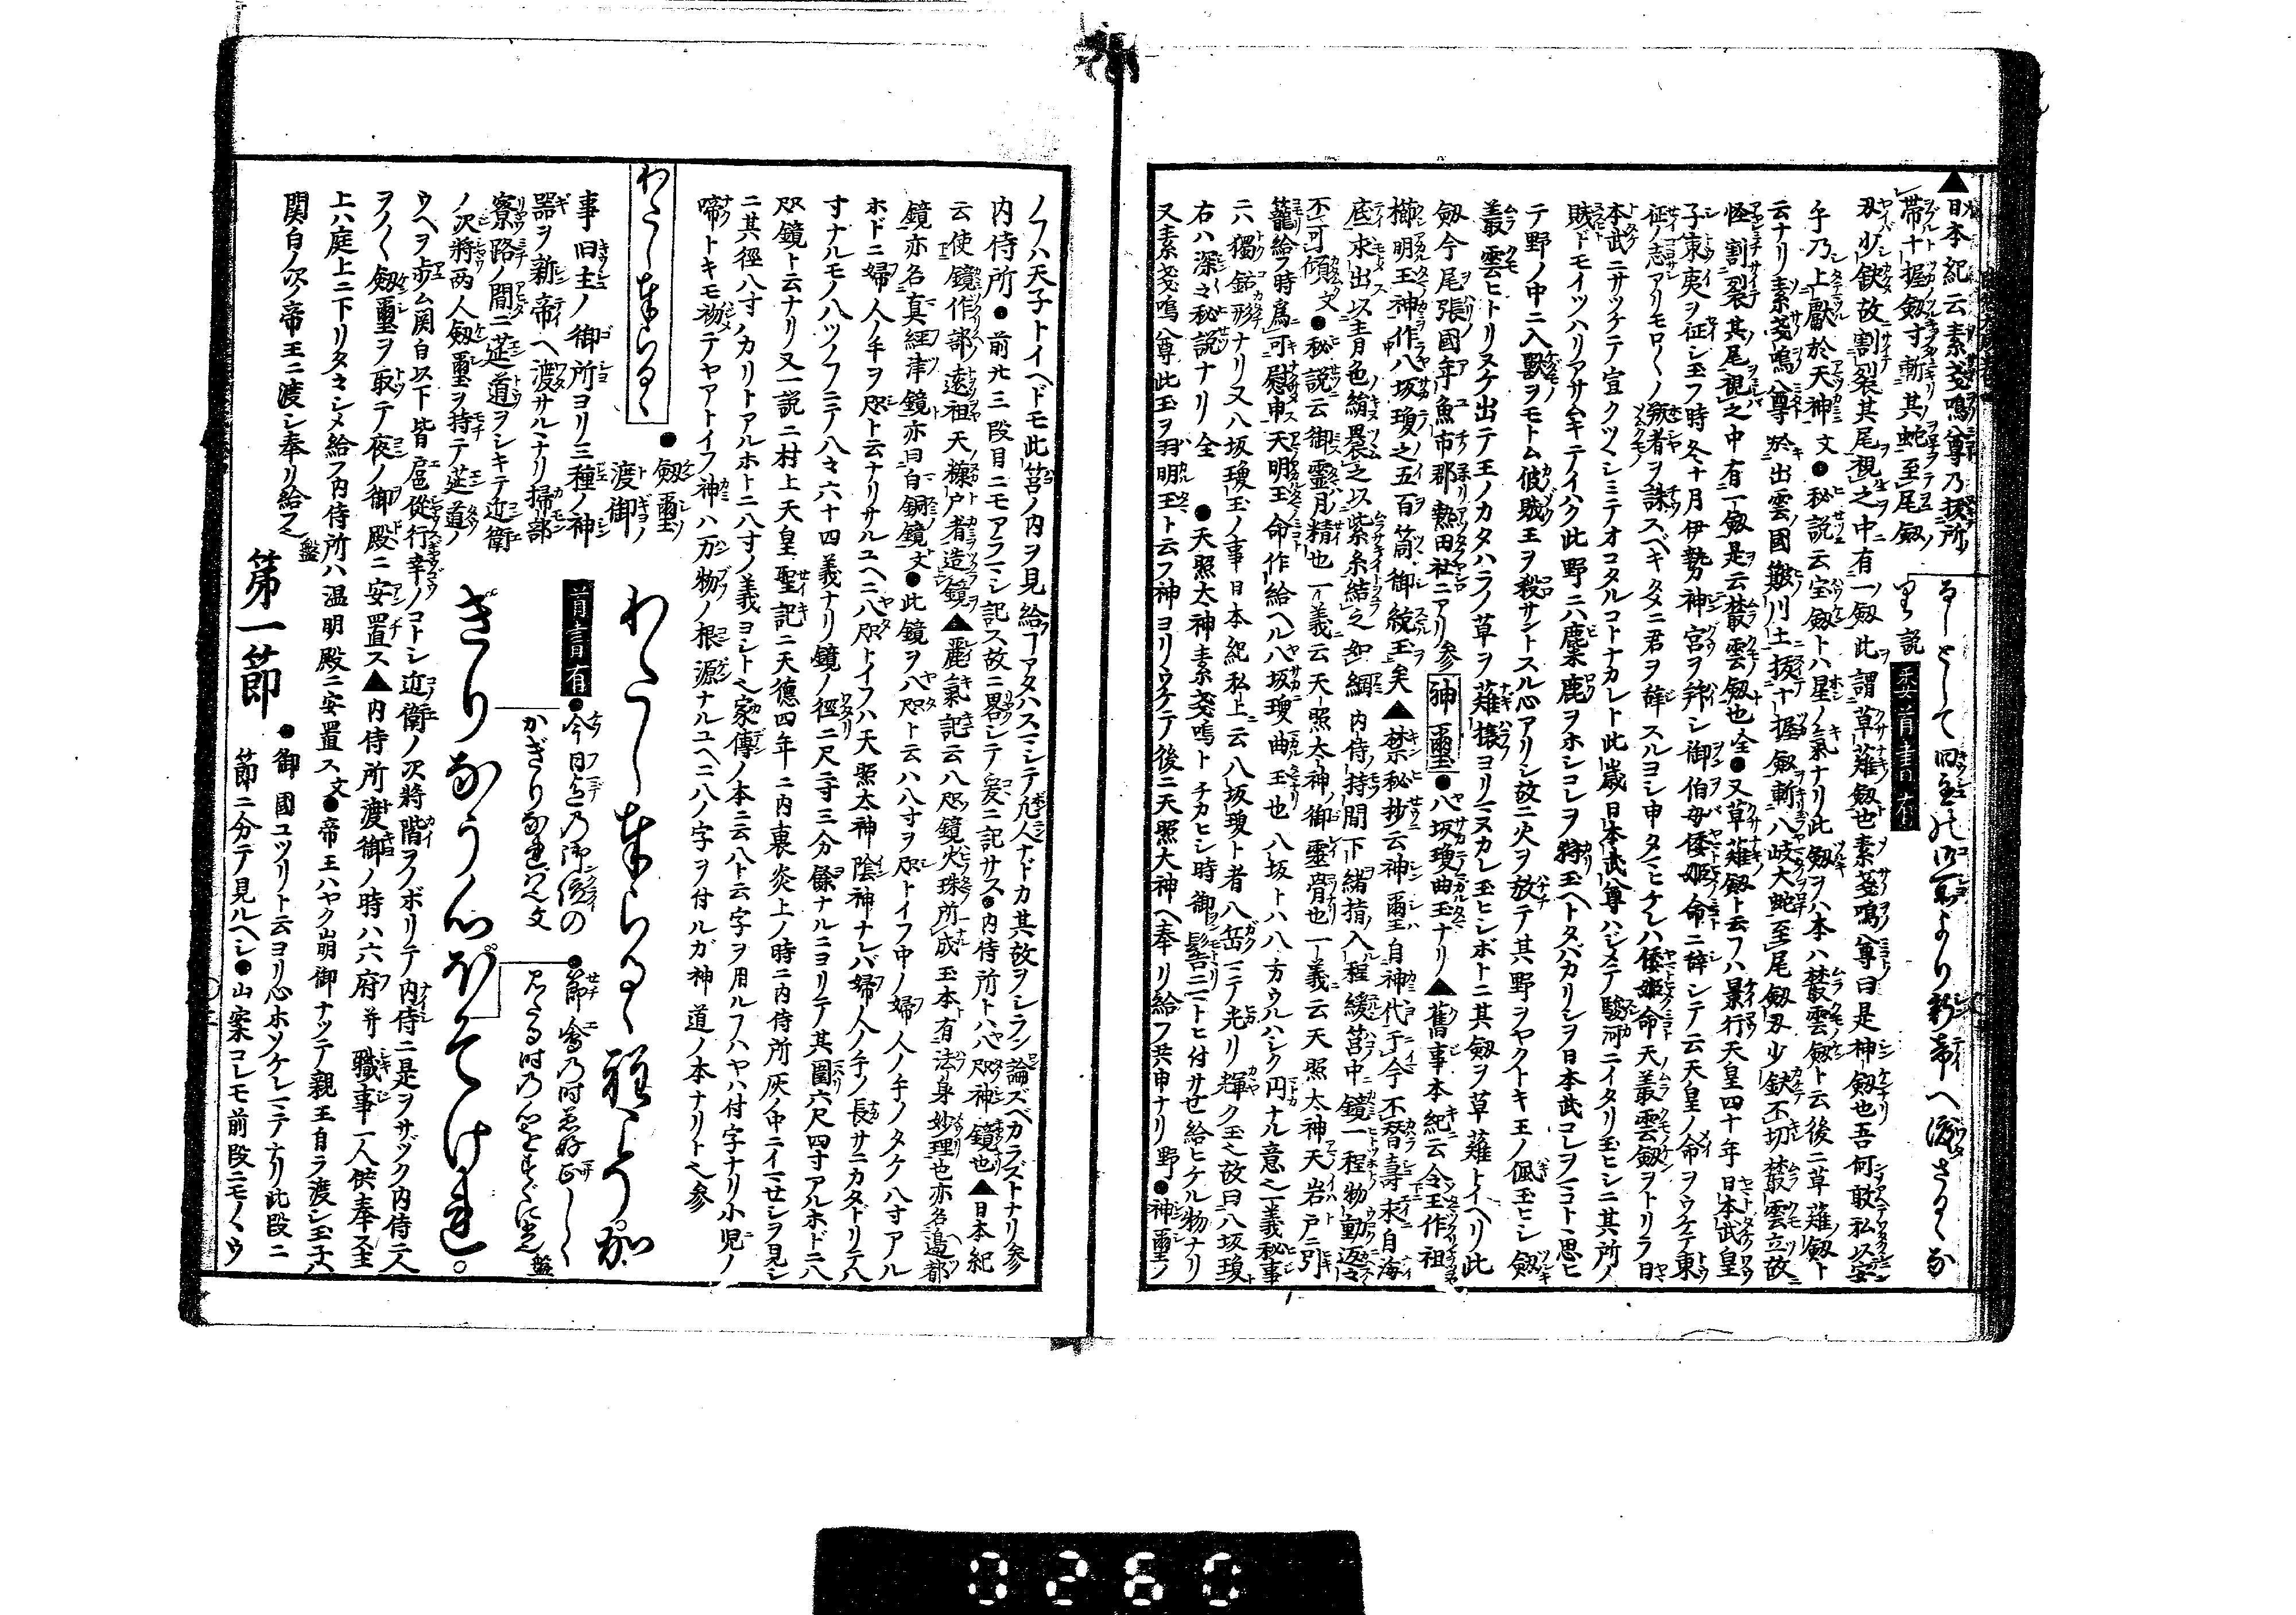 ▲日本紀云素戔嗚尊乃抜所
帯十握劔寸斬其蛇至尾劔
刃少缺故割裂其尾視之中有一劔此謂草薙劔也素戔嗚尊曰是神劔也吾何敢私以安
乎乃上獻於天神文●秘説云宝劔トハ星ノ氣ナリ此劔ヲハ本ハ藂雲劔ト云後ニ草薙劔ト
云ナリ素戔嗚尊於出雲國簸川上抜十握劔斬八岐大蛇至尾劔刃少缺不切藂雲立故
怪割裂其尾視之中有一劔是云藂雲劔也全●又草薙劔ト云フハ景行天皇四十年日本武皇
子東夷ヲ征シ玉フ時冬十月伊勢神宮ヲ拜シ御伯母倭姫命ニ辞シテ云天皇ノ命ヲウケテ東
征ノ志アリモロ〱ノ叛者ヲ誅スベキタメニ君ヲ辞スルヨシ申タマヒケレハ倭姫命天藂雲劔ヲトリテ日
本武ニサツケテ宣クツヽシミテオコタルコトナカレト此歳日本武尊ハジメテ駿河ニイタリ玉ヒシニ其所ノ
賊ドモイツハリアサムキテイハク此野ニハ麋鹿ヲホシコレヲ狩玉ヘトタバカリシヲ日本武コレヲマコトヽ思ヒ
テ野ノ中ニ入獸ヲモトム彼賊王ヲ殺サントスル心アリシ故ニ火ヲ放テ其野ヲヤクトキ王ノ佩玉ヒシ劔
藂雲ヒトリヌケ出テ王ノカタハラノ草ヲ薙攘ヨリマヌカレ玉ヒシホトニ其劔ヲ草薙トイヘリ此
劔今尾張國年魚市郡熱田社ニアリ参 神璽●八坂瓊曲玉ナリ▲舊事本紀云令玉作祖
櫛明玉神作八坂瓊之五百箇御統玉矣▲禁秘抄云神璽自神代于今不替壽求自海
底求出以青色絹裹之以紫糸結之如網内侍持間下緒指入程緩筥中鏡一程物動返々
不可傾文●秘説云御靈月精也一義云天照太神御靈骨也一義云天照太神天岩戸ニ引
籠給フ時爲可慰申天明玉命作給ヘル八坂瓊曲玉也八坂トハ八方ウルハシク円ナル意也一義秘事
ニハ獨鈷形ナリ又八坂瓊玉ノ事日本紀私上云八坂瓊ト者八岳ニテ光リ輝ク玉之故曰八坂瓊
右ハ深之秘説ナリ全●天照太神素戔嗚トチカヒシ時御髻ニマトヒ付サセ給ヒケル物ナリ
又素戔嗚尊此玉ヲ羽明玉ト云フ神ヨリウケテ後ニ天照大神ヘ奉リ給フ共申ナリ野●神璽ノ
ノフハ天子トイヘドモ此筥ノ内ヲ見給フアタハスマシテ凡人ナドカ其故ヲシラン論ズベカラズトナリ参
内侍所●前廿三段目ニモアラマシ記ス故ニ畧シテ爰ニ記サス●内侍所トハ八咫神鏡也▲日本紀
云使鏡作部遠祖天糠戸者造鏡▲麗氣記云八咫鏡火珠所成玉本有法身妙理也亦名邉都
鏡亦名真経津鏡亦曰白銅鏡文●此鏡ヲ八咫ト云ハ八寸ヲ咫トイフ中ノ婦人ノ手ノタケ八寸アル
ホドニ婦人ノ手ヲ咫ト云ナリサルユヘニ八咫トイフハ天照太神陰神ナレバ婦人ノ手ノ長サニカタドリテ八
寸ナルモノ八ツノフニテ八々六十四義ナリ鏡ノ徑二尺一寸三分餘ナルニヨリテ其圍六尺四寸アルホドニ八
咫鏡ト云ナリ又一説ニ村上天皇聖記ニ天徳四年ニ内裏炎上ノ時ニ内侍所灰ノ中ニイマセシヲ見シ
ニ其徑八寸ノカリトアルホトニ八寸ノ義ヨシト也家傳ノ本ニ云八ト云字ヲ用ルフハヤハ付字ナリ小児ノ
啼トキモ初テヤアトイフ神ハ万物ノ根源ナルユヘニ八ノ字ヲ付ルガ神道ノ本ナリト也参
わたし奉らるゝ
●劔璽渡御ノ
事旧主ノ御所ヨリ三種ノ神
器ヲ新帝ヘ渡サルヽナリ掃部
寮路ノ間ニ莚道ヲシキテ近衛
ノ次將両人劔璽ヲ持テ莚道ノ
わたし奉らるゝ程こそ
首書有
●今日迄乃御位の
かぎりなれば也文
●節會乃時
ぎりなう心ぼそけれ。
ウヘヲ歩ム関白以下皆扈從行幸ノコトシ近衛ノ次將階ヲノボリテ内侍ニ是ヲサヅク内侍二人
ヲノ〱劔璽ヲ取テ夜ノ御殿ニ安置ス▲内侍所渡御ノ時ハ六府并職事一人供奉ス主
上ハ庭上ニ下リタヽシメ給フ内侍所ハ温明殿ニ安置ス文●帝王ハヤク崩御ナツテ親王自ラ渡シ玉フハ
関白ノ次ノ帝王ニ渡シ奉リ給フ也盤
第一節
●御國ユツリト云ヨリ心ホソケレマテナリ此段ニ
節ニ分テ見ルヘシ●山案コレモ前段ニモノヽウ
0260